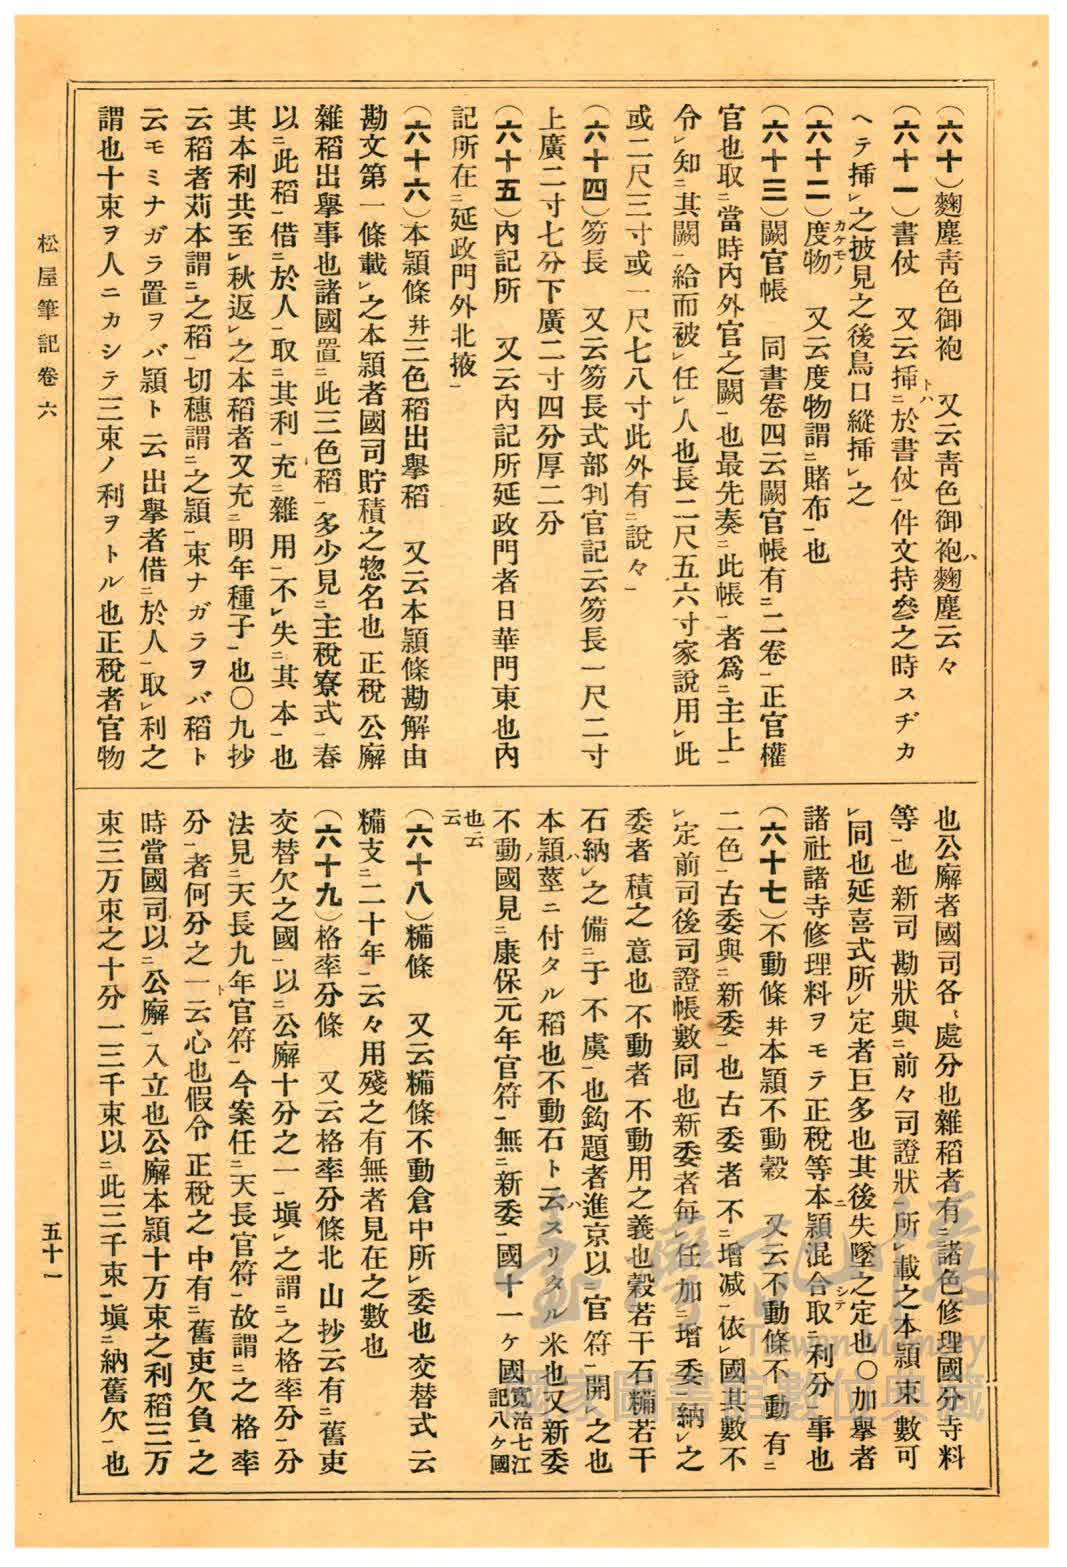 (六十)麴塵靑色御袍 又云靑色御袍ハ麴塵云々
(六十一)書仗 又云挿ニ於書仗一トハ件文持參之時スヂカ
ヘテ挿レ之披見之後鳥口縱挿レ之
(六十二)度物カケモノ 又云度物謂ニ賭布一也
(六十三)闕官帳 同書卷四云闕官帳有ニ二卷一正官權
官也取ニ當時內外官之闕一也最先奏ニ此帳一者爲ニ主上一
令レ知ニ其闕一給而被レ任レ人也長二尺五六寸家說用レ此
或二尺三寸或一尺七八寸此外有ニ說々一
(六十四)笏長 又云笏長式部判官記云笏長一尺二寸
上廣二寸七分下廣二寸四分厚二分
(六十五)內記所 又云內記所延政門者日華門東也內
記所在ニ延政門外北掖一
(六十六)本頴條幷三色稻出擧稻 又云本頴條勘解由
勘文第一條載レ之本頴者國司貯積之惣名也正稅公廨
雜稻出擧事也諸國置ニ此三色稻一多少見ニ主稅寮式一春
以ニ此稻一借ニ於人一取ニ其利一充ニ雜用一不レ失ニ其本一也
其本利共至レ秋返レ之本稻者又充ニ明年種子一也〇九抄
云稻者苅本謂ニ之稻一切穗謂ニ之頴一束ナガラヲバ稻ト
云モミナガラ置ヲバ頴ト云出擧者借ニ於人一取レ利之
謂也十束ヲ人ニカシテ三束ノ利ヲトル也正稅者官物
也公廨者國司各〻處分也雜稻者有ニ諸色修理國分寺料
等一也新司勘狀與ニ前々司證狀一所レ載之本頴束數可
レ同也延喜式所レ定者巨多也其後失墜之定也〇加擧者
諸社諸寺修理料ヲモテ正稅等本頴ニ混合シテ取ニ利分一事也
(六十七)不動條幷本頴不動穀 又云不動條不動有ニ
二色一古委與ニ新委一也古委者不ニ增减一依レ國其數不
レ定前司後司證帳數同也新委者每レ任加ニ增委ニ納レ之
委者積之意也不動者不動用之義也穀若干石糒若干
石納レ之備ニ于不虞一也鈎題者進京以ニ官符一開レ之也
本頴ハ莖ニ付タル稻也不動石ト云ハスリタル米也又新委
不動國見ニ康保元年官符一無ニ新委一國十一ケ國寬治七江記八ケ國
也云云
(六十八)糒條 又云糒條不動倉中所レ委也交替式云
糒支ニ二十年一云々用殘之有無者見在之數也
(六十九)格率分條 又云格率分條北山抄云有ニ舊吏
交替欠之國一以ニ公廨十分之一一塡レ之謂ニ之格率分一分
法見ニ天長九年官符一今案任ニ天長官符一故謂ニ之格率
分一者何分之一ト云心也假令正稅之中有ニ舊吏欠負一之
時當國司以ニ公廨一入立也公廨本頴十万束之利稻三万
束三万束之十分一三千束以ニ此三千束一塡ニ納舊欠一也
松屋筆記卷六
五十一
臺灣記憶
Taiwan Memory
國家圖書館數位典藏